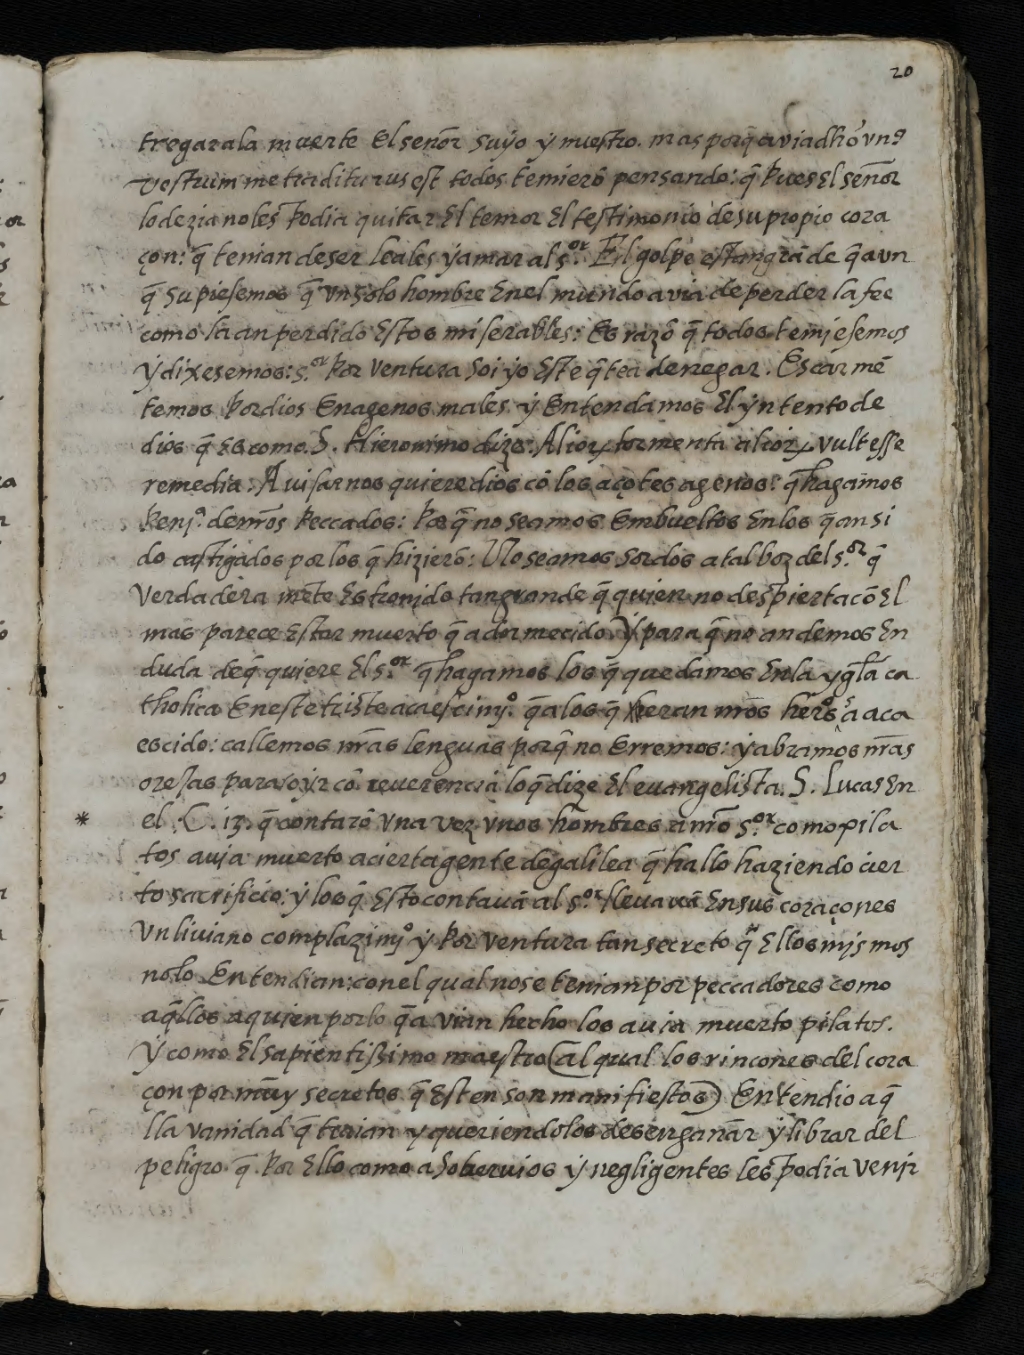 20
tregar a la muerte El señor suyo ÿ nuestro. mas porq̃ avia dh̃o vnꝰ
vestrum me traditurus est todos temierõ pensando: q̃ pues El señor
lo dezia no les podia quitar El temor El testimonio de su propio cora
çon: q̃ tenian de ser leales ÿ amar al s.ᵒʳ El golpe es tan grãde q̃ aun
q̃ supiesemos q̃ vn solo hombre En el mundo avia de perder la fee
como la an perdido Estos miserables: Es razõ q̃ todos temiesemos
ÿ dixesemos: s.ᵒʳ por ventura soi ÿo Este q̃ te a de negar. Escarmẽ
temos por dios En agenos males ÿ Entendamos El ÿntento de
dios q̃ Es como. S. Hieronimo dize: Alioꝝ tormenta alioꝝ vult esse
remedia: Auisar nos quiere dios cõ los açotes agenos: q̃ hagamos
penj.ᵃ de nr̃os peccados: Por q̃ no seamos Embueltos En los q̃ an si
do castigados por los q̃ hizierõ: No seamos sordos a tal boz del s.ᵒʳ q̃
verdadera mẽte Es tronido tan grande q̃ quien no despierta cõ El
mas parece Estar muerto q̃ adormecido. Y para q̃ no andemos En
duda de q̃ quiere El s.ᵒʳ q̃ hagamos los q̃ quedamos En la ygl̃a ca
tholica En este triste acaescimj.ᵒ q̃ a los q̃ eran nr̃os herõs a aca
escido: callemos nr̃as lenguas porq̃ no Erremos: ÿ abramos nr̃as
orejas para oÿr cõ reuerencia lo q̃ dize El euangelista. S. Lucas En
* el .C. 13. q̃ contarõ vna vez vnos hombres a nr̃o s.ᵒʳ como pila
tos auia muerto a cierta gente de galilea q̃ hallo haziendo cier
to sacrificio: ÿ los q̃ Esto contauã al s.ᵒʳ lleuauã En sus coraçones
vn liviano complazimj.ᵒ ÿ por ventura tan secreto q̃ Ellos mjsmos
no lo Entendian: con el qual no se tenian por peccadores como
aq̃llos a quien por lo q̃ avian hecho los auia muerto pilatos.
Ÿ como El sapientissimo maestro (al qual los rincones del cora
çon por muy secretos q̃ Esten son manifiestos) Entendio aq̃
lla vanidad q̃ traian y queriendolos desengañar ÿ librar del
peligro q̃ por Ello como a soberuios ÿ negligentes les podia venjr